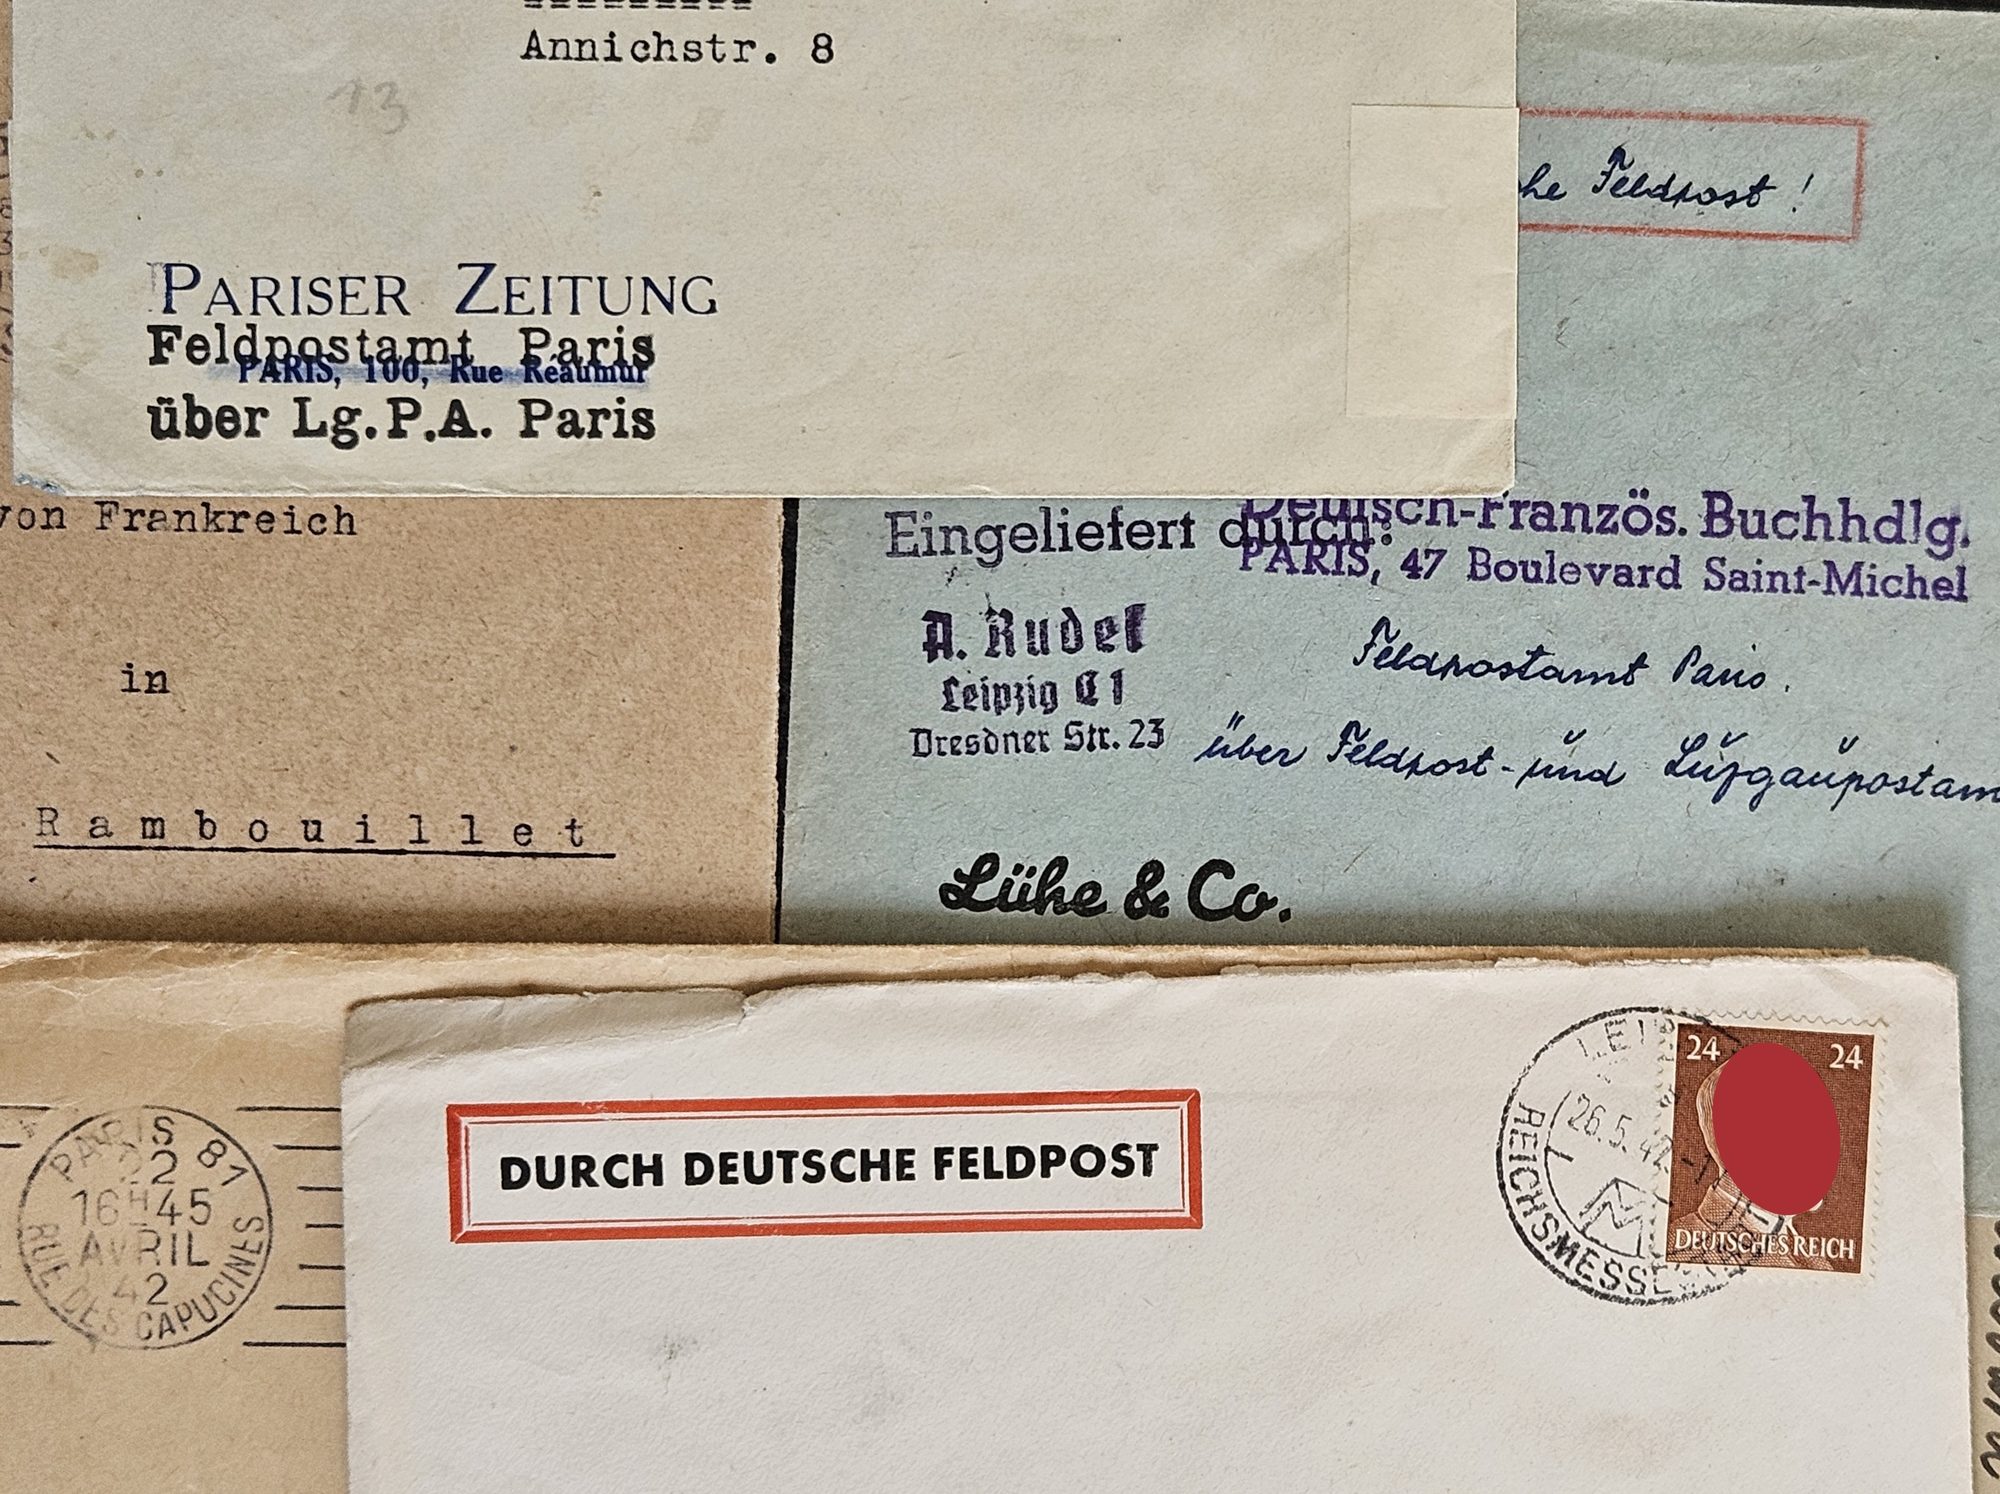 Annichstr. 8
13
he Feldpost!
PARISER ZEITUNG
Feldpostamt Paris
PARIS, 100, Rue Réaumur
über Lg.P.A. Paris
von Frankreich
in
Rambouillet
Eingeliefert durch:
Deutsch-Französ. Buchhdlg.
PARIS, 47 Boulevard Saint-Michel
A. Rudel
Leipzig C 1
Dresdner Str. 23
Feldpostamt Paris.
über Feldpost- und Luftgaupostam
Lühe & Co.
PARIS 81
22
16H45
AVRIL
42
RUE DES CAPUCINES
DURCH DEUTSCHE FELDPOST
26.5.42
REICHSMESSE
24 24
DEUTSCHES REICH